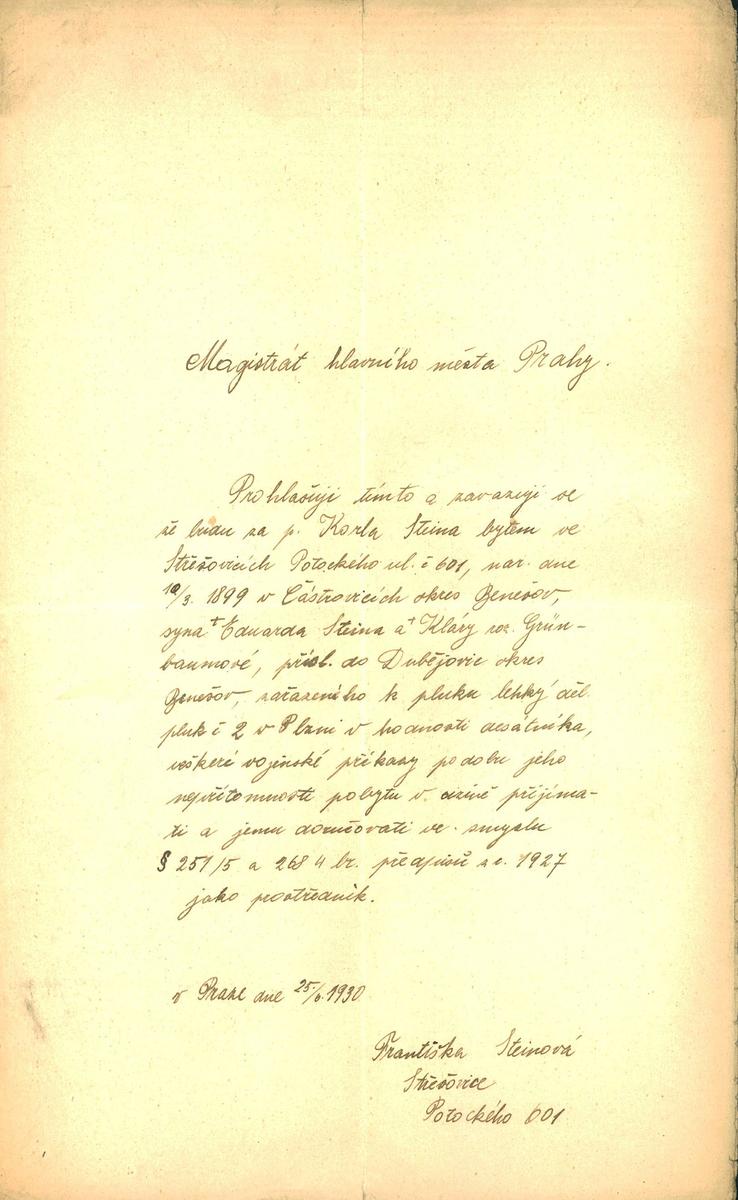 Magistrát hlavního města Prahy.
Prohlašuji tímto a zavazuji se
že budu za p. Karla Steina bytem ve
Střešovicích Potockého ul. č 601, nar. dne
10/3. 1899 v Částrovicích okres Benešov,
syna † Eduarda Steina a † Kláry roz. Grün-
baumové, přísl. do Dubějovic okres
Benešov, zařazeného k pluku lehký děl.
pluk č 2 v Plzni v hodnosti desátníka,
veškeré vojenské příkazy po dobu jeho
nepřítomnosti pobytu v cizině přijíma-
ti a jemu doručovati ve smyslu
§ 251/5 a 268 4 br. předpisů z r. 1927
jako prostředník.
v Praze dne 25/6. 1930
Františka Steinová
Střešovice
Potockého 601